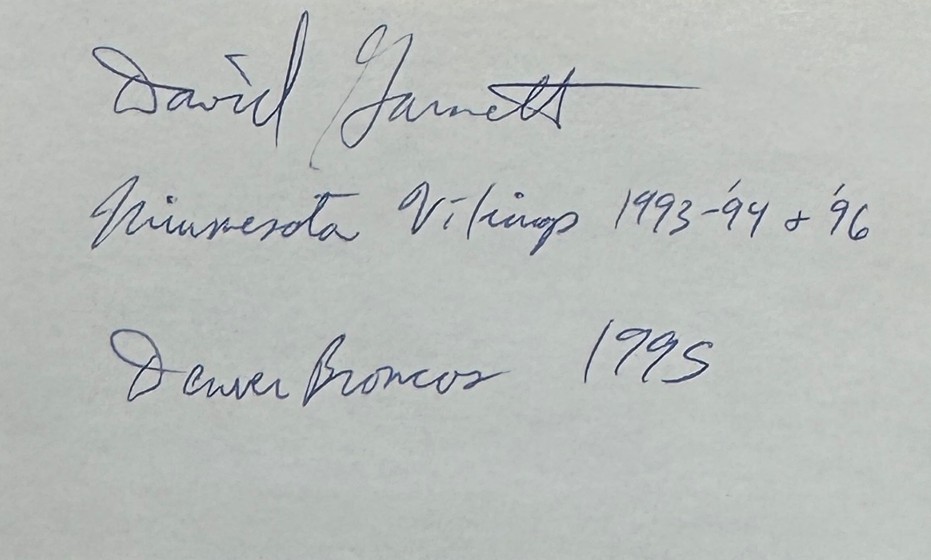 David Garnett
Minnesota Vikings 1993-'94 & '96
Denver Broncos 1995